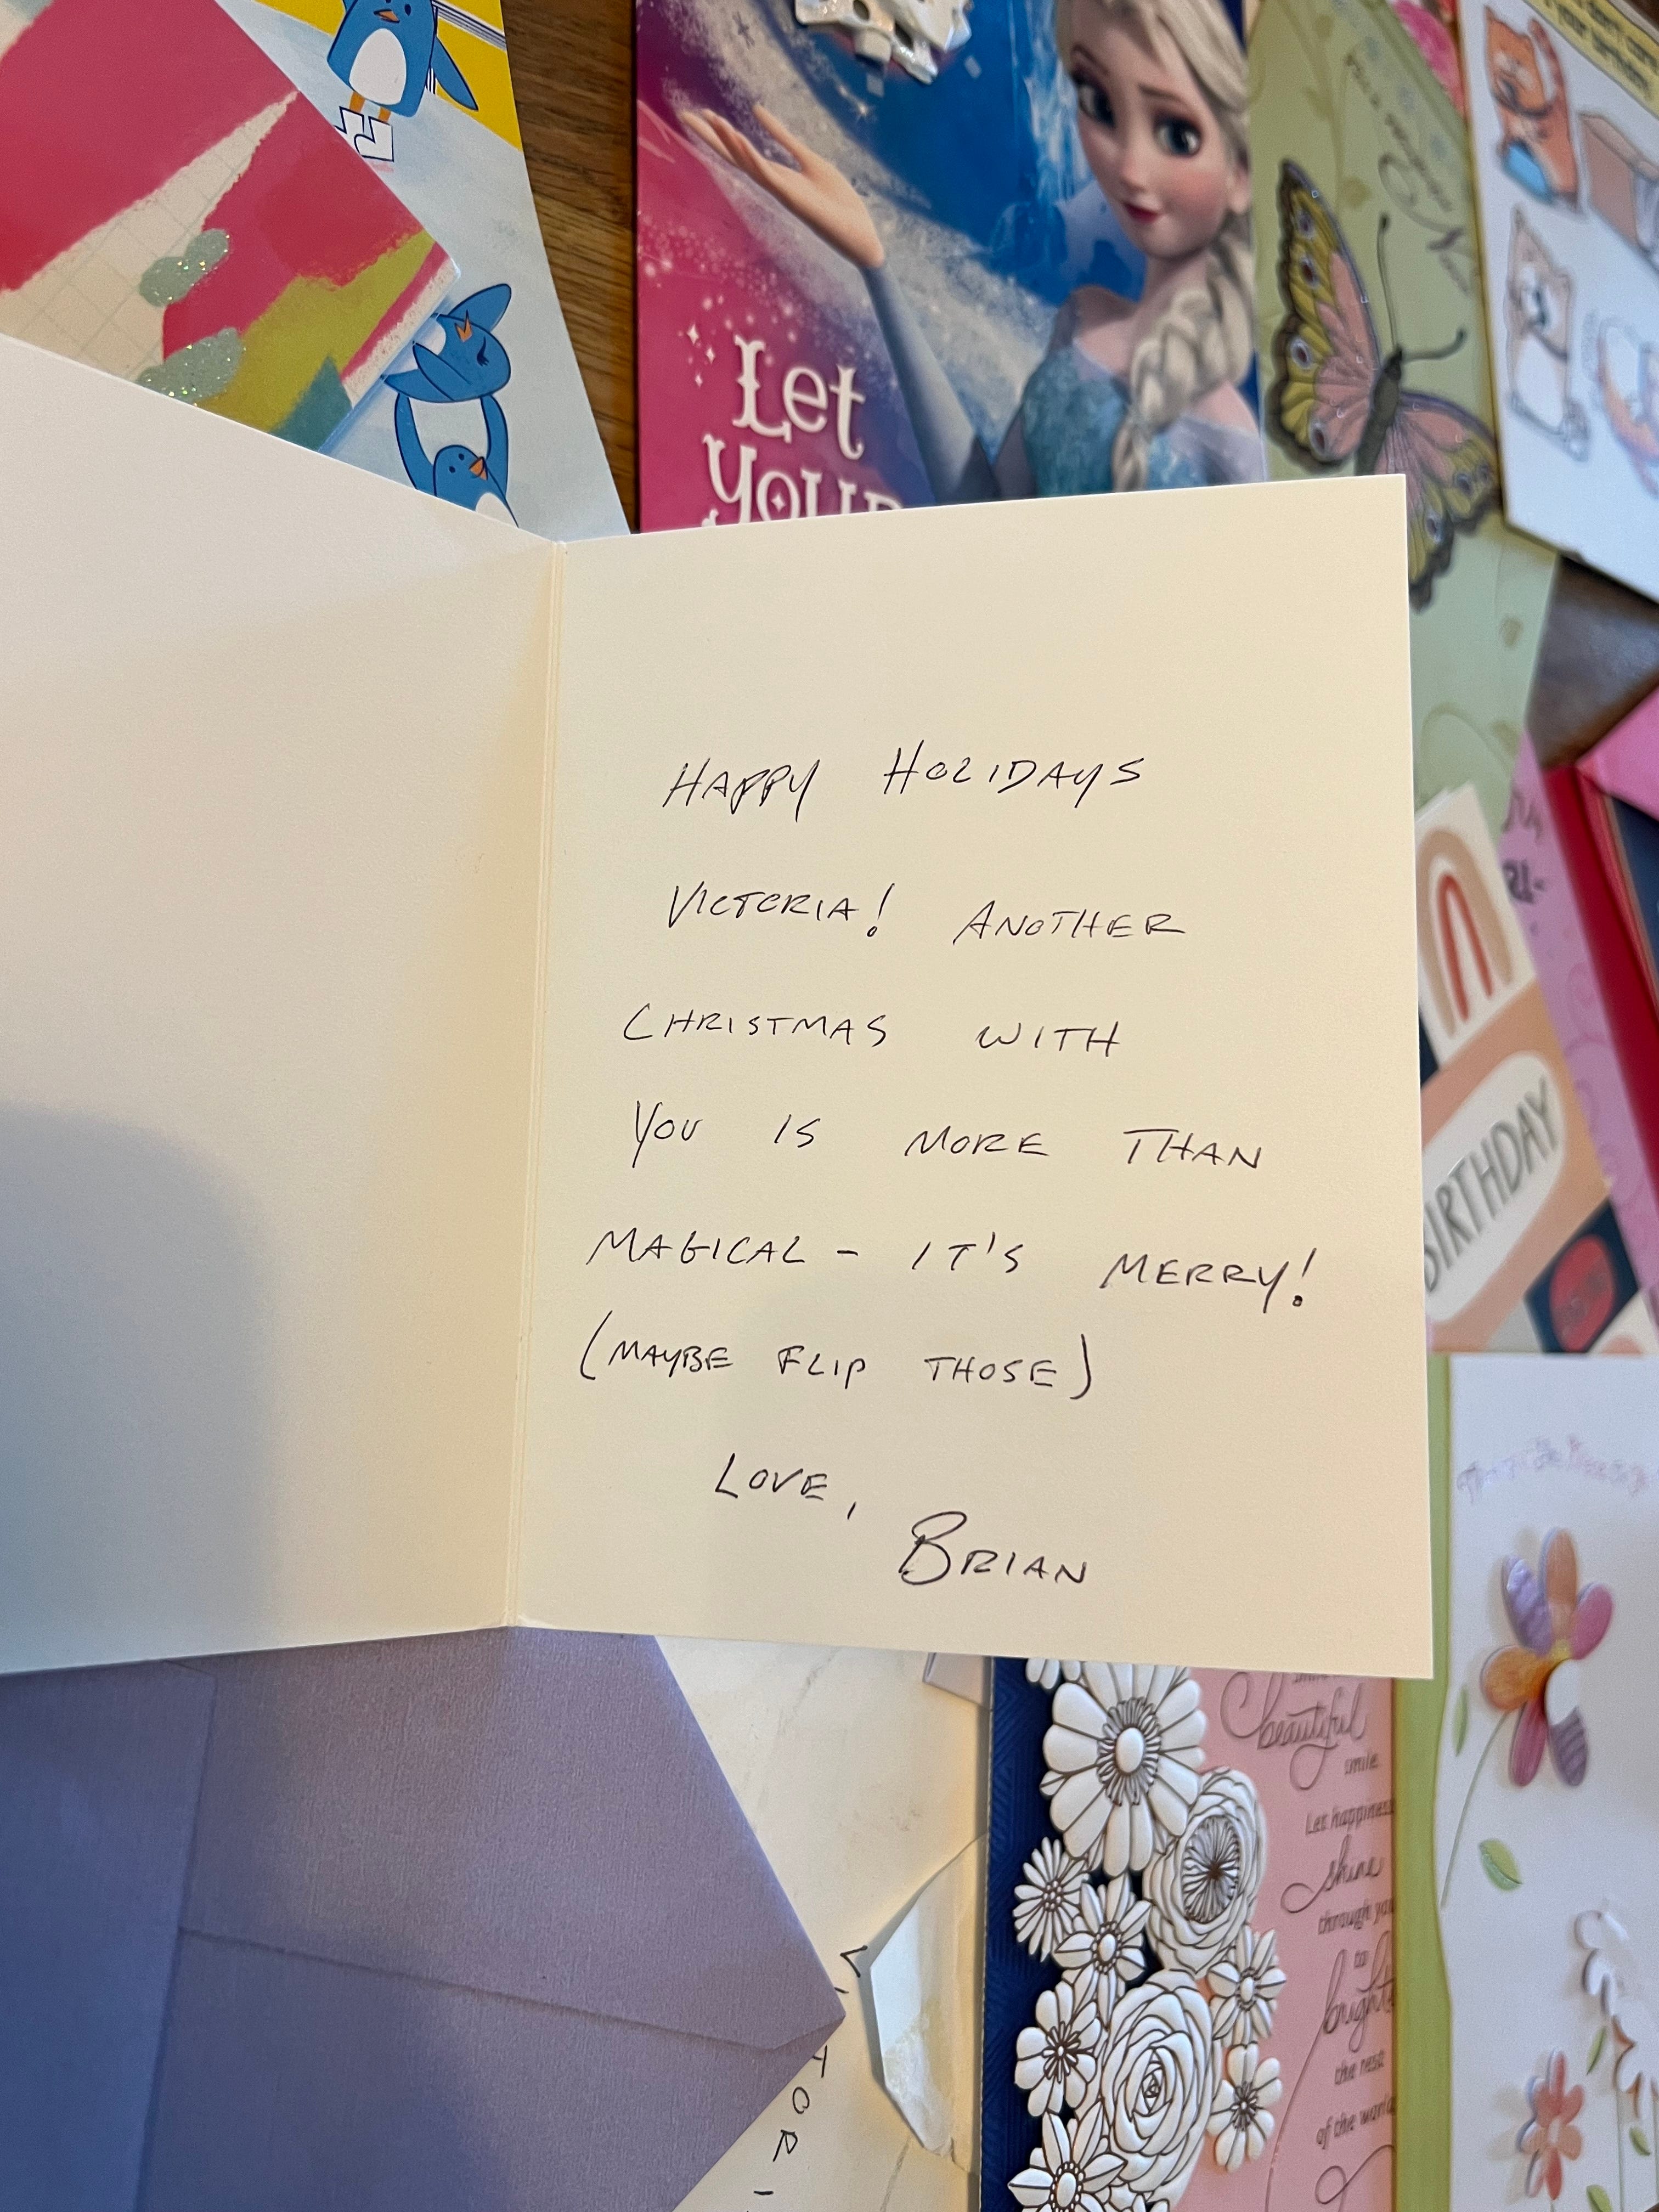 Let
Your
HAPPY HOLIDAYS
VICTORIA! ANOTHER
CHRISTMAS WITH
YOU IS MORE THAN
MAGICAL - IT'S MERRY!
(MAYBE FLIP THOSE)
LOVE,
BRIAN
BIRTHDAY
beautiful
smile.
Let happiness
shine
through you
to
the rest
of the world